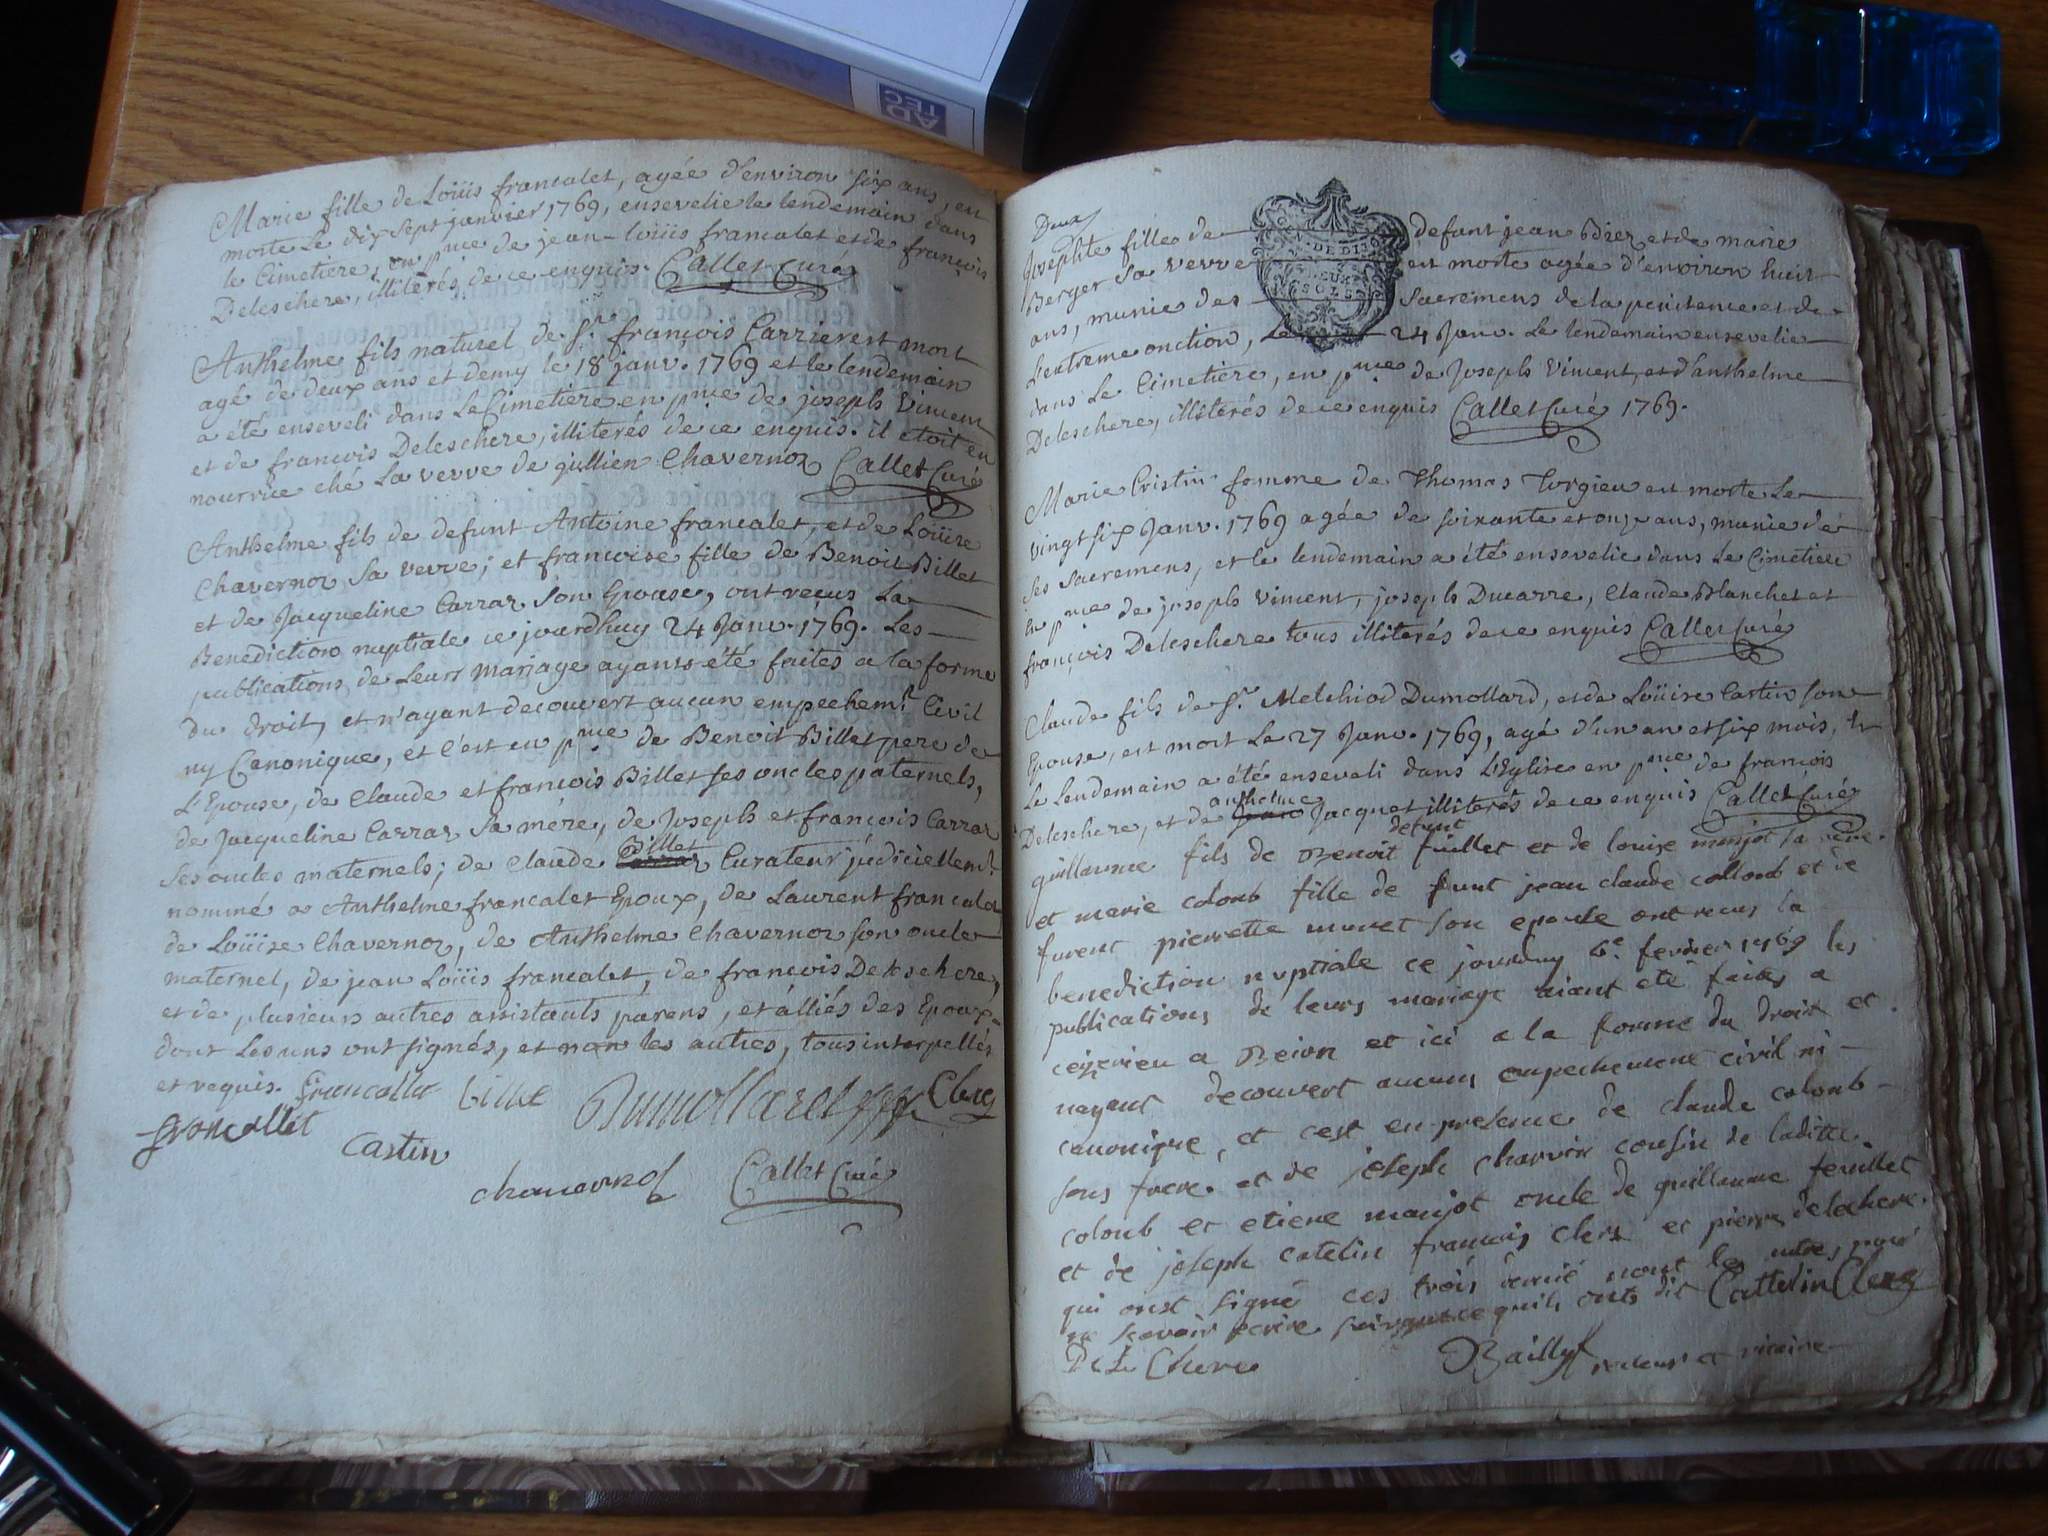 Marie fille de Loüis francalet, agée d'environ six ans, est
morte le dix sept janvier 1769, ensevelie le lendemain dans
le Cimetiere, en pnce de jean-loüis francalet et de françois
Deleschere, illiterés de ce enquis. Callet Curé
Anthelme fils naturel de Sr. françois Carrier est mort
agé de deux ans et demy le 18 janv. 1769 et le lendemain
a été enseveli dans Le Cimetière en pnce de joseph Vincent
et de francois Deleschere, illiterés de ce enquis. il etoit en
nourrice ché La vevve de jullien Chavernoz Callet Curé
Anthelme fils de defunt Antoine francalet, et de Loüise
Chavernoz sa vevve; et francoise fille de Benoit Billet
et de Jacqueline Carraz son Epouse, ont recus La
Benediction nuptiale ce jourdhuy 24 Janv. 1769. Les
publications de Leurs Mariage ayants été faites a la forme
du droit, et n'ayant decouvert aucun empechemt. Civil
ny Canonique, et c'est en pnce de Benoit Billet pere de
L'Epouse, de Claude et francois Billet ses oncles paternels,
de Jacqueline Carraz sa mére, de Joseph et francois Carraz
ses oncles maternels; de Claude Billet Curateur judiciellemt.
nommé a Anthelme francalet Epoux, de Laurent francalet
de Loüise Chavernoz, de Anthelme Chavernoz son oncle
maternel, de jean Loüis francalet, de francois Deleschere,
et de plusieurs autres assistants parens, et alliés des Epoux
dont Les uns ont signés, et non les autres, tous interpellés
et requis. francallet billet Dumollard Clerc
francallet
Castin
chavernoz Callet Curé
Deux
GEN. DE DIJON
DEUX
SOLS
Josephte fille de defunt jean Bdiez et de marie
Berger sa vevve est morte agée d'environ huit
ans, munie des Sacremens de la penitence et de
L'extreme onction, Le 24 Janv. Le lendemain ensevelie
dans Le Cimetière, en pnce de Joseph Vincent, et d'anthelme
Deleschere, illiterés de ce enquis Callet Curé 1769.
Marie Cristin femme de Thomas Turgieu est morte Le
vingt six Janv. 1769 agée de soixante et onze ans, munie de
ses sacremens, et le lendemain a été ensevelie dans Le Cimetiere
en pnce de joseph Vincent, joseph Ducarre, Claude Blanchet et
françois Deleschere tous illiterés de ce enquis Callet Curé
Claude fils de Sr. Melchiod Dumollard, et de Loüise Castin son
Epouse, est mort Le 27 Janv. 1769, agé d'un an et six mois, et
Le Lendemain a été enseveli dans L'Eglise en pnce de francois
Deleschere, et de anthelme Jacquet illiterés de ce enquis Callet Curé
guillaume fils de defunt Benoit fuillet et de louise manjot sa veuve
et marie colomb fille de funt jean claude collomb et de
furent pierrette muret son epouse ont recus la
benediction nuptiale ce jourduy 6e. fevrier 1769 les
publications de leurs mariage aiant eté faites a
ceizerieu a Beion et ici a la forme du droit et
nayant decouvert aucun empechement civil ni
canonique, et cest en presence de claude colomb
sons frere. et de joseph charvin cousin de laditte
colomb et etiene manjot oncle de guillaume feuillet
et de joseph catelin francois clerc et pierre delechere
qui onst signé ces trois dernié nont les autres pour
ne scavoir ecrire ce quils onts dit Cattelin Clerc
De Le Chere Bailly recteur et vicaire
AD
TEC